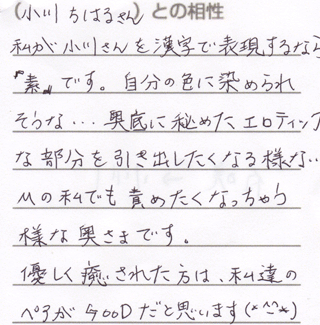 (小川 ちはるさん)との相性
私が小川さんを漢字で表現するなら
『素』です。自分の色に染められ
そうな…奥底に秘めたエロティック
な部分を引き出したくなる様な…
Mの私でも責めたくなっちゃう
様な奥さまです。
優しく癒されたた方は、私達の
ペアがGOODだと思います(*^^*)